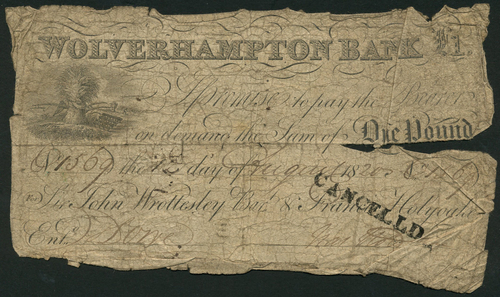 WOLVERHAMPTON BANK £1.
I promise to pay the Bearer
on demand the Sum of One Pound
the day of August 1820
Sir John Wrottesley Bart. & Francis Holyoake
CANCELLD
Entd.